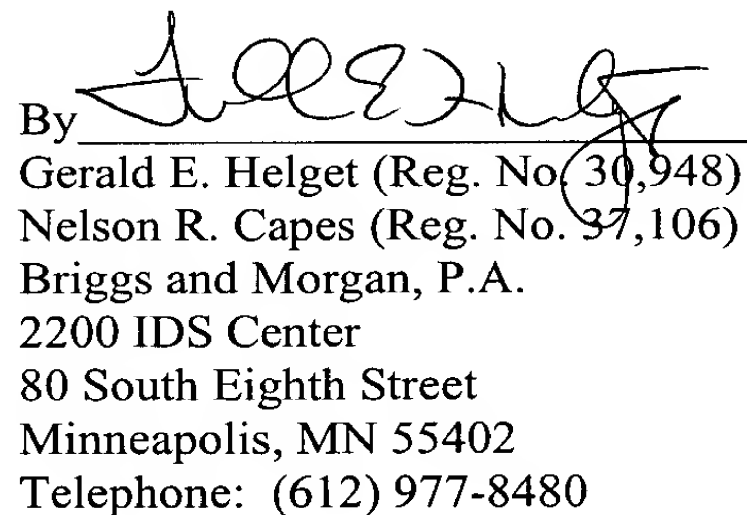 By
Gerald E. Helget (Reg. No. 30,948)
Nelson R. Capes (Reg. No. 37,106)
Briggs and Morgan, P.A.
2200 IDS Center
80 South Eighth Street
Minneapolis, MN 55402
Telephone: (612) 977-8480